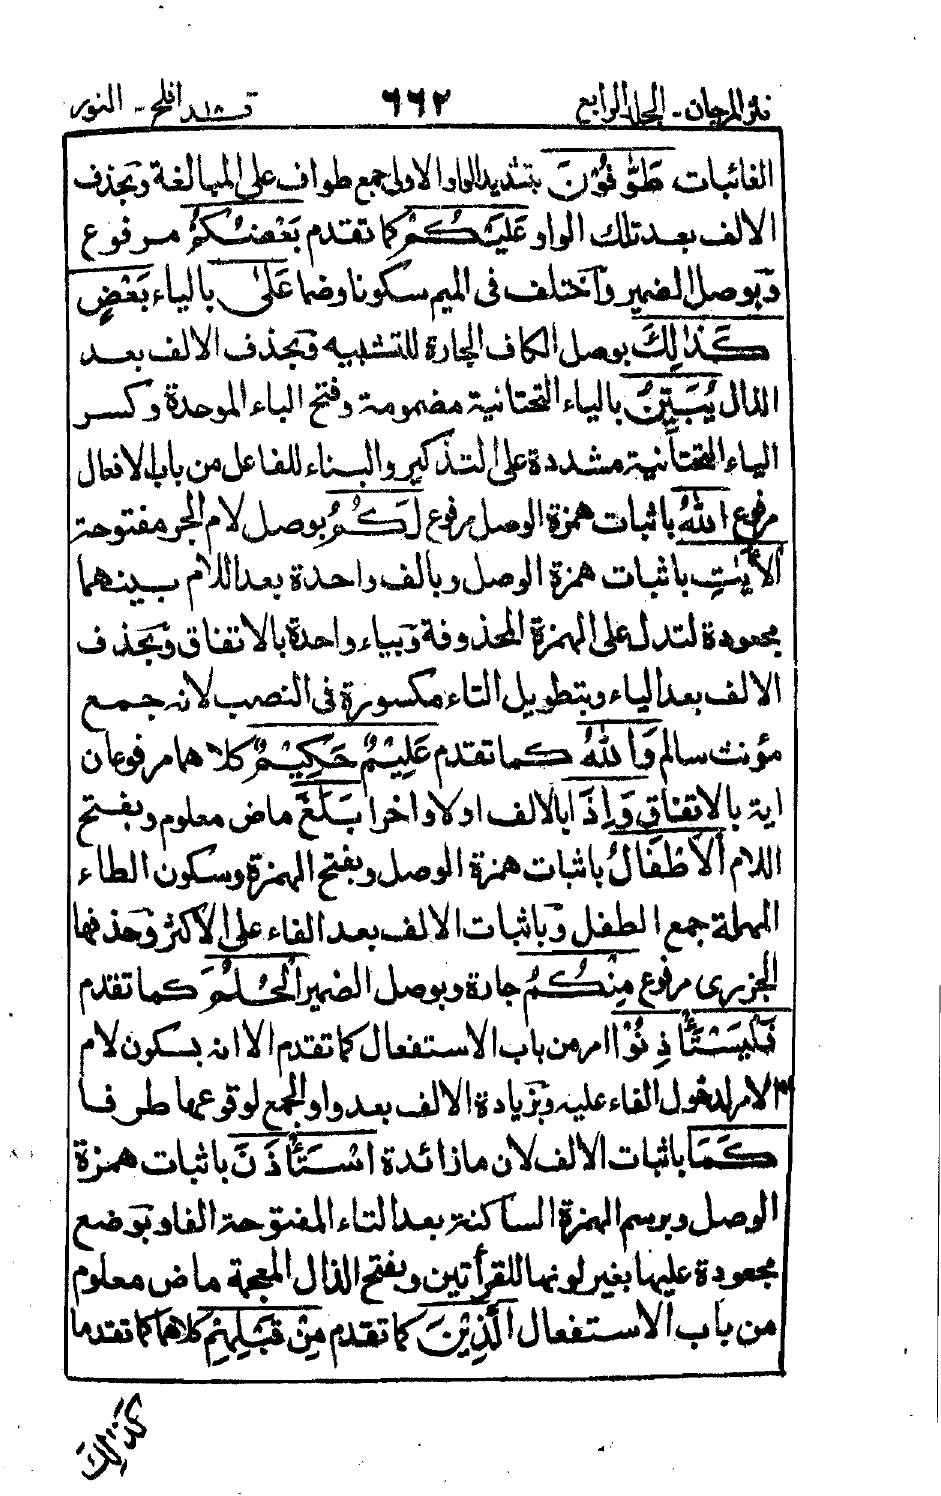 نثر المرجان - الجلد الرابع ٦٦٢ قد افلح ١٨ - النور
الغائبات طَوّٰفُوْنَ بتشديد الواو الاولى جمع طواف على المبالغة وبحذف
الالف بعد تلك الواو عَلَيْكُمْ كما تقدم بَعْضُكُمْ مرفوع
وبوصل الضمير واختلف فى الميم سكونا وضما عَلٰى بالياء بَعْضٍ
كَذٰلِكَ بوصل الكاف الجارة للتشبيه وبحذف الالف بعد
الذال يُبَيِّنُ بالياء التحتانية مضمومة وفتح الباء الموحدة وكسر
الياء التحتانية مشددة على التذكير والبناء للفاعل من باب الافعال
مرفوع اللّٰهُ باثبات همزة الوصل مرفوع لَكُمُ بوصل لام الجر مفتوحة
الْاٰيٰتِ باثبات همزة الوصل وبالف واحدة بعد اللام بينهما
مجعودة لتدل على الهمزة المحذوفة وبياء واحدة بالاتفاق وبحذف
الالف بعد الياء وبتطويل التاء مكسورة فى النصب لانه جمع
مؤنث سالم وَاللّٰهُ كما تقدم عَلِيْمٌ حَكِيْمٌ كلاهما مرفوعان
اية بالاتفاق وَاِذَا بالالف اولا واخرا بَلَغَ ماض معلوم وبفتح
اللام الْاَطْفَالُ باثبات همزة الوصل وبفتح الهمزة وسكون الطاء
المهملة جمع الطفل وباثبات الالف بعد الفاء على الاكثر وحذفها
الجزرى مرفوع مِنْكُمُ جارة وبوصل الضمير الْحُلُمَ كما تقدم
فَلْيَسْتَأْذِنُوْا امر من باب الاستفعال كما تقدم الا انه بسكون لام
الامر لدخول الفاء عليه وبزيادة الالف بعد واو الجمع لوقوعها طرفا
كَمَا باثبات الالف لان ما زائدة اسْتَأْذَنَ باثبات همزة
الوصل وبرسم الهمزة الساكنة بعد التاء المفتوحة الفا وبوضع
مجعودة عليها بغير لونها للقرأتين وبفتح الذال المعجمة ماض معلوم
من باب الاستفعال الَّذِيْنَ كما تقدم مِنْ قَبْلِهِمْ كلاهما كما تقدما
كَذٰلِكَ